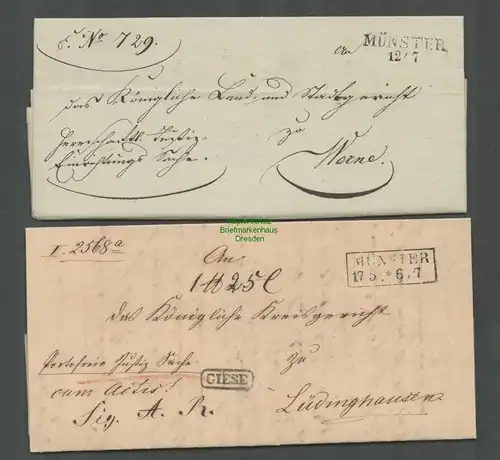 S. No 729.
An
MÜNSTER
12/7
das Königliche Land- und Stadtgericht
Herrschaftl. Justiz-
Einrichtungs Sache.
zu
Werne.
Briefmarkenhaus
Dresden
I. 2568a
An
1 ℔ 25 l
MÜNSTER
17 5 * 6-7
das Königliche Kreisgericht
Portofreie Justiz Sache.
zu
cum Actis!
GIESE
Sig. A. R.
Lüdinghausen